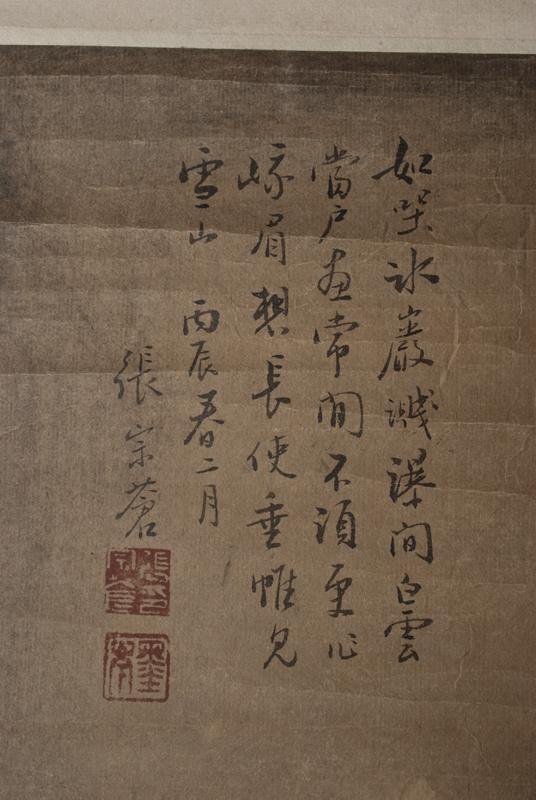 如哭冰巖濺瀑间白雲
當户畫常間不須更作
峨眉想長使垂帷見
雪山 丙辰春二月
張宗蒼